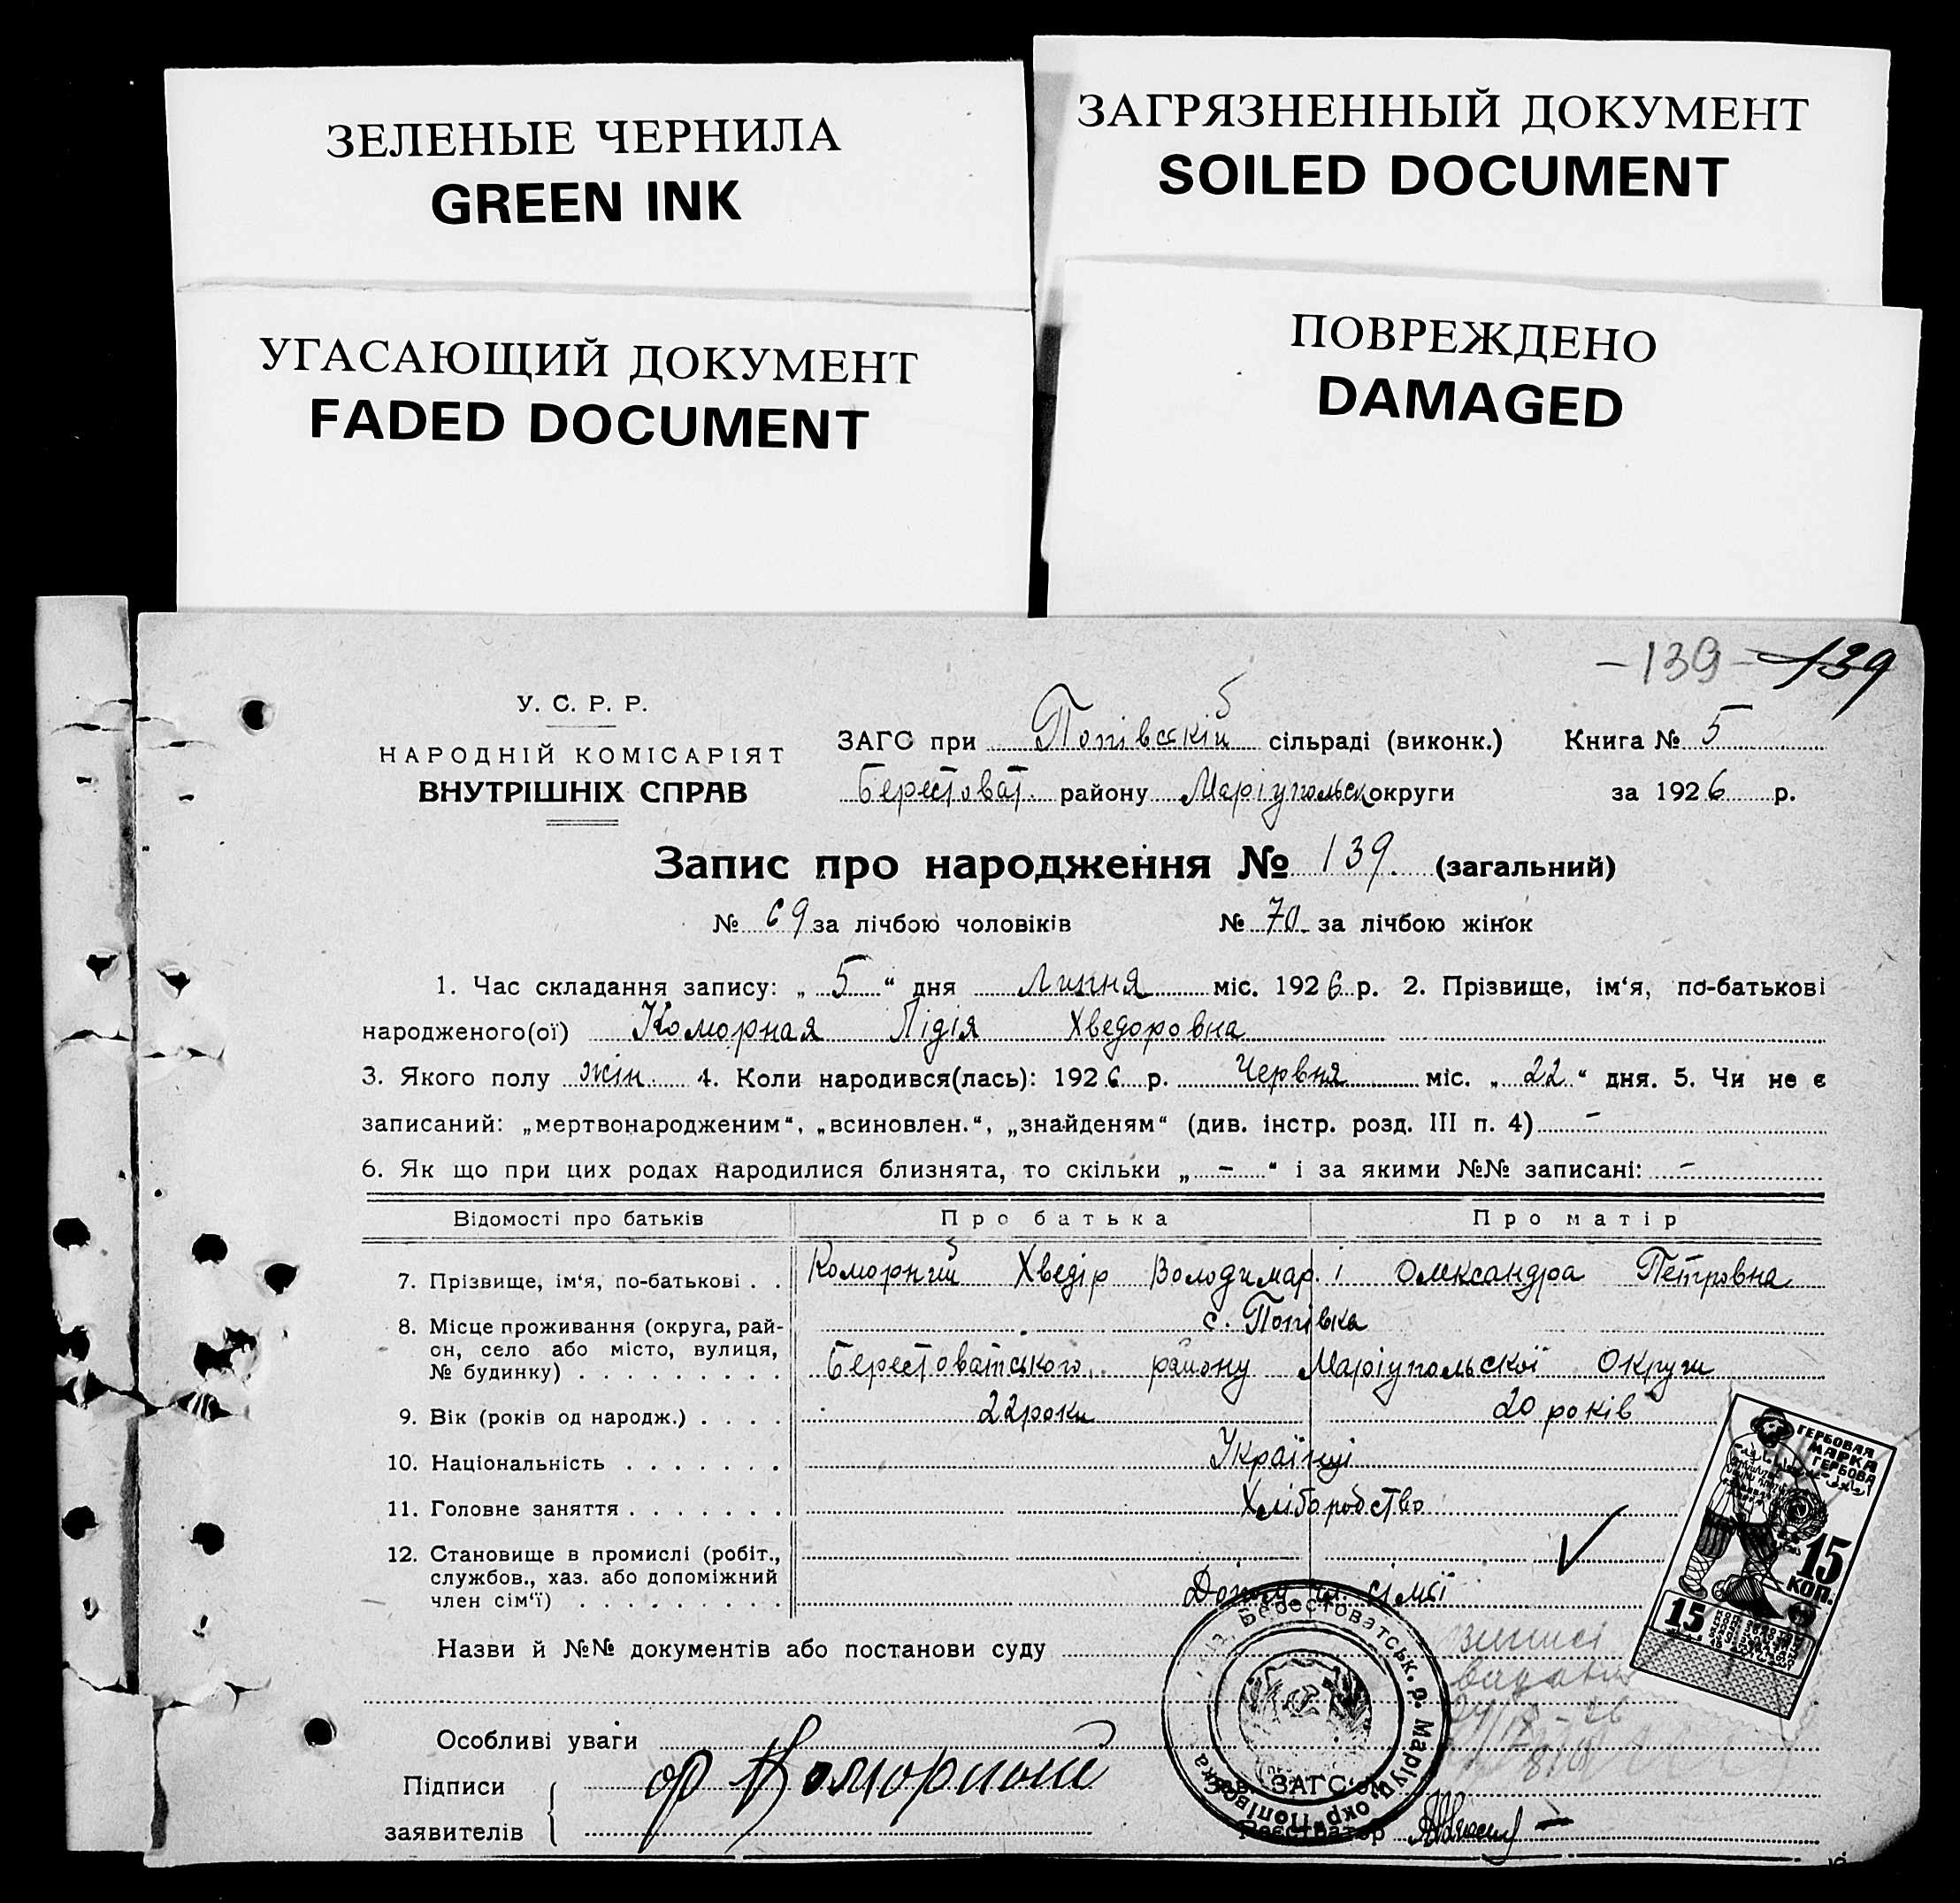 ЗЕЛЕНЫЕ ЧЕРНИЛА
GREEN INK
ЗАГРЯЗНЕННЫЙ ДОКУМЕНТ
SOILED DOCUMENT
УГАСАЮЩИЙ ДОКУМЕНТ
FADED DOCUMENT
ПОВРЕЖДЕНО
DAMAGED
-139- 139
У. С. Р. Р.
НАРОДНІЙ КОМІСАРІЯТ
ВНУТРІШНІХ СПРАВ
ЗАГС при Попівській сільраді (виконк.) Книга № 5
Берестоват. району Маріупольськ округи за 1926 р.
Запис про народження № 139. (загальний)
№ 69 за лічбою чоловіків № 70. за лічбою жінок
1. Час складання запису: „ 5 “ дня Липня міс. 1926 р. 2. Прізвище, ім‘я, по-батькові
народженого(ої) Коморная Лідія Хведоровна
3. Якого полу жін. 4. Коли народився(лась): 1926 р. Червня міс. „ 22 “ дня. 5. Чи не є
записаний: „мертвонародженим“, „всиновлен.“, „знайденям“ (див. інстр. розд. III п. 4) -
6. Як що при цих родах народилися близнята, то скільки „ - “ і за якими №№ записані: -
Відомості про батьків Про батька Про матір
7. Прізвище, ім‘я, по-батькові . . Коморний Хведір Володимар. і Олександра Петровна
8. Місце проживання (округа, рай- с. Попівка
он, село або місто, вулиця,
№ будинку) . . . . . . . . . Берестоватського району Маріупольскої Округи
9. Вік (років од народж.) . . . . 22 роки 20 років
10. Національність . . . . . . . Українці
11. Головне заняття . . . . . . . Хліборобство
12. Становище в промислі (робіт.,
службов., хаз. або допоміжний
член сім‘ї) . . . . . . . . . Допом. чл. сімьї
ГЕРБОВАЯ
МАРКА
ГЕРБОВА
15
КОП.
15
Назви й №№ документів або постанови суду
Берестоватськ. р. Маріуп. окр. Попівська
ЗАГС
Особливі уваги
Підписи
заявителів
Реєстратор